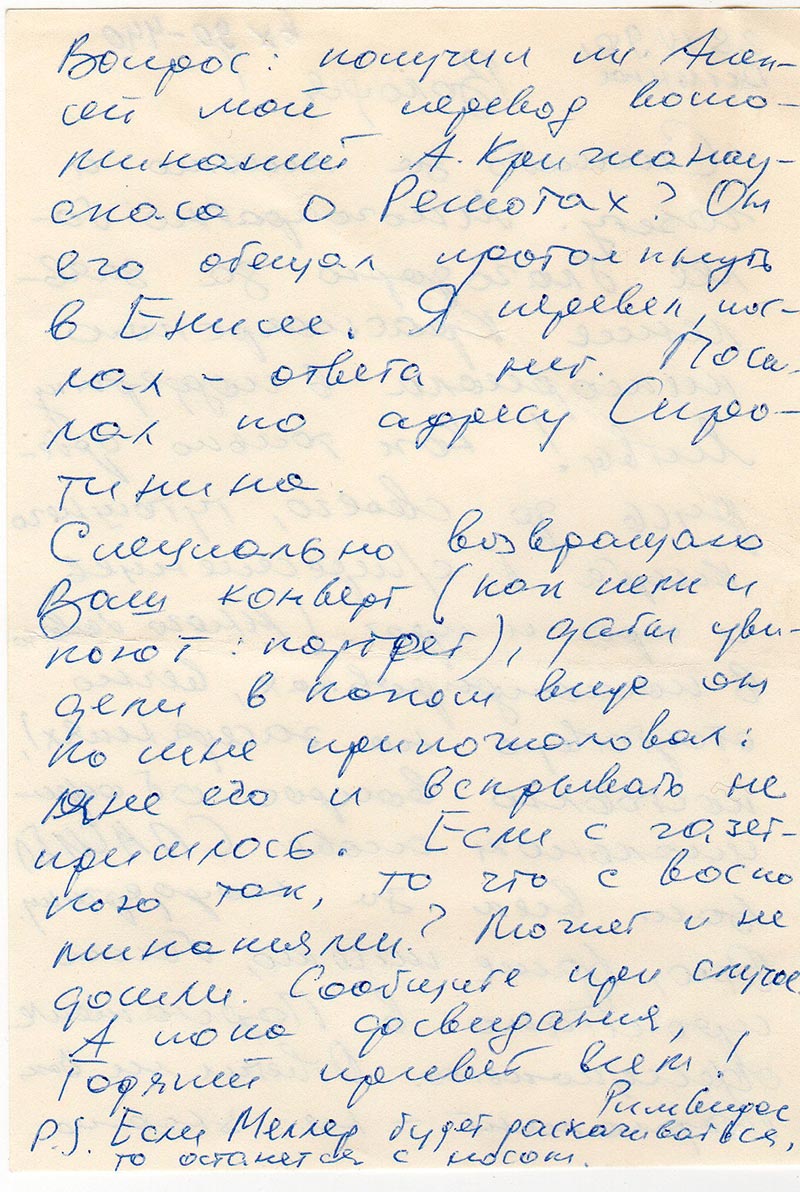 Вопрос: получил ли Алек-
сей мой перевод воспо-
минаний А. Крижанау-
скаса о Решотах? Он
его обещал протолкнуть
в Енисее. Я перевел, пос-
лал – ответа нет. Посы-
лал по адресу Сиро-
тинина.
Специально возвращаю
Ваш конверт (как немки
поют: портрет), дабы уви-
дели в каком виде он
ко мне припожаловал:
мне его и вскрывать не
пришлось. Если с газет-
кою так, то что с воспо
минаниями? Может и не
дошли. Сообщите при случае.
А пока досвидания,
Годячий привет всем!
Римвидас
P.S. Если Меллер будет раскачиваться,
то останется с носом.